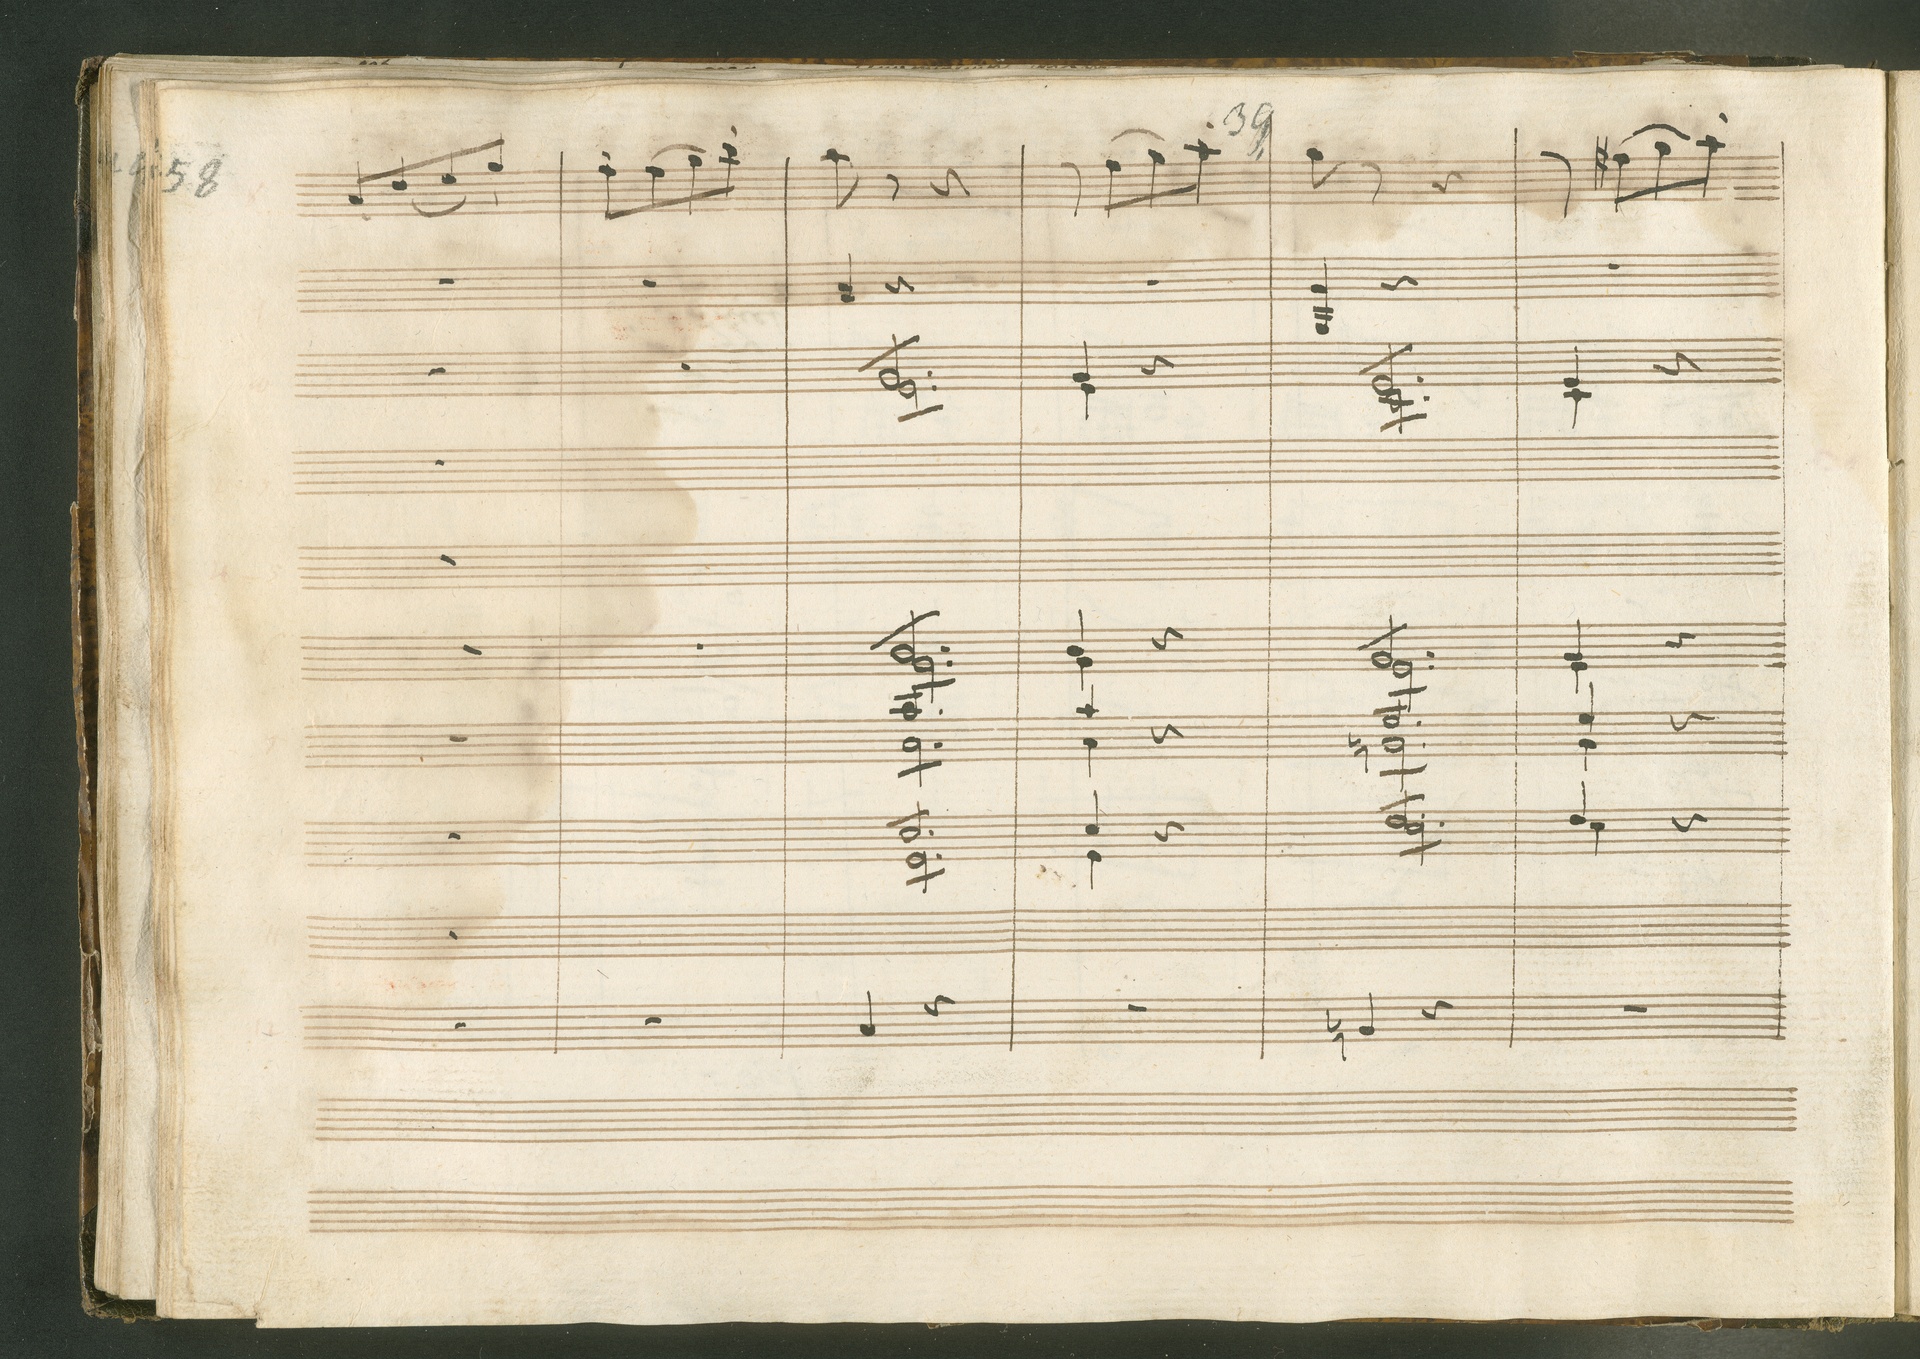 39
58